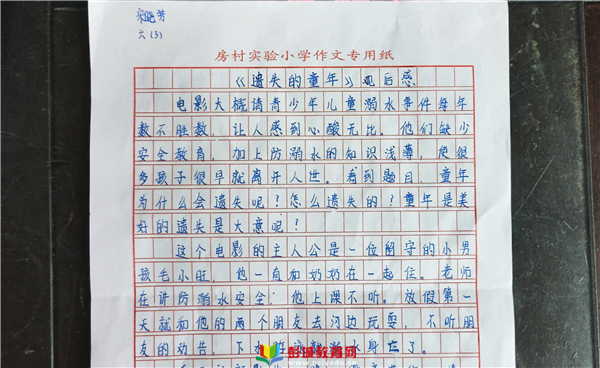 六(3)
房村实验小学作文专用纸
《遗失的童年》观后感
电影大概请青少年儿童溺水事件每年
数不胜数，让人感到心酸无比。他们缺少
安全教育，加上防溺水的知识浅薄，使很
多孩子很早就离开人世。看到题目，童年
为什么会遗失呢？怎么遗失的？童年是美
好的遗失是大意呢？
这个电影的主人公是一位留守的小男
孩毛小旺，他一自和奶奶在一起住。老师
在讲防溺水安全 他上课不听。放假第一
天就和他的两个朋友去河边玩耍，不听朋
友的劝告，下水 溺水身亡了。
彭城教育网